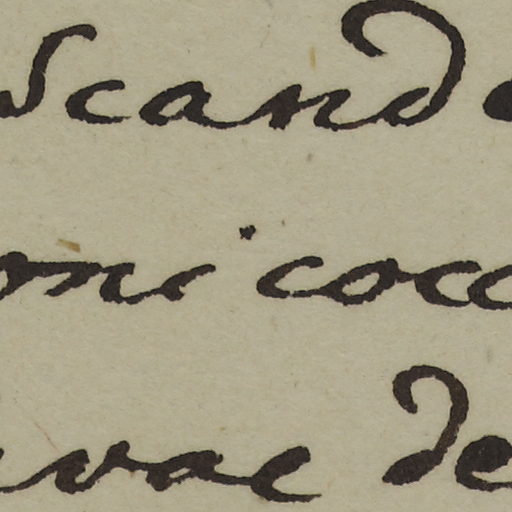 Scande
oni coce
vae de